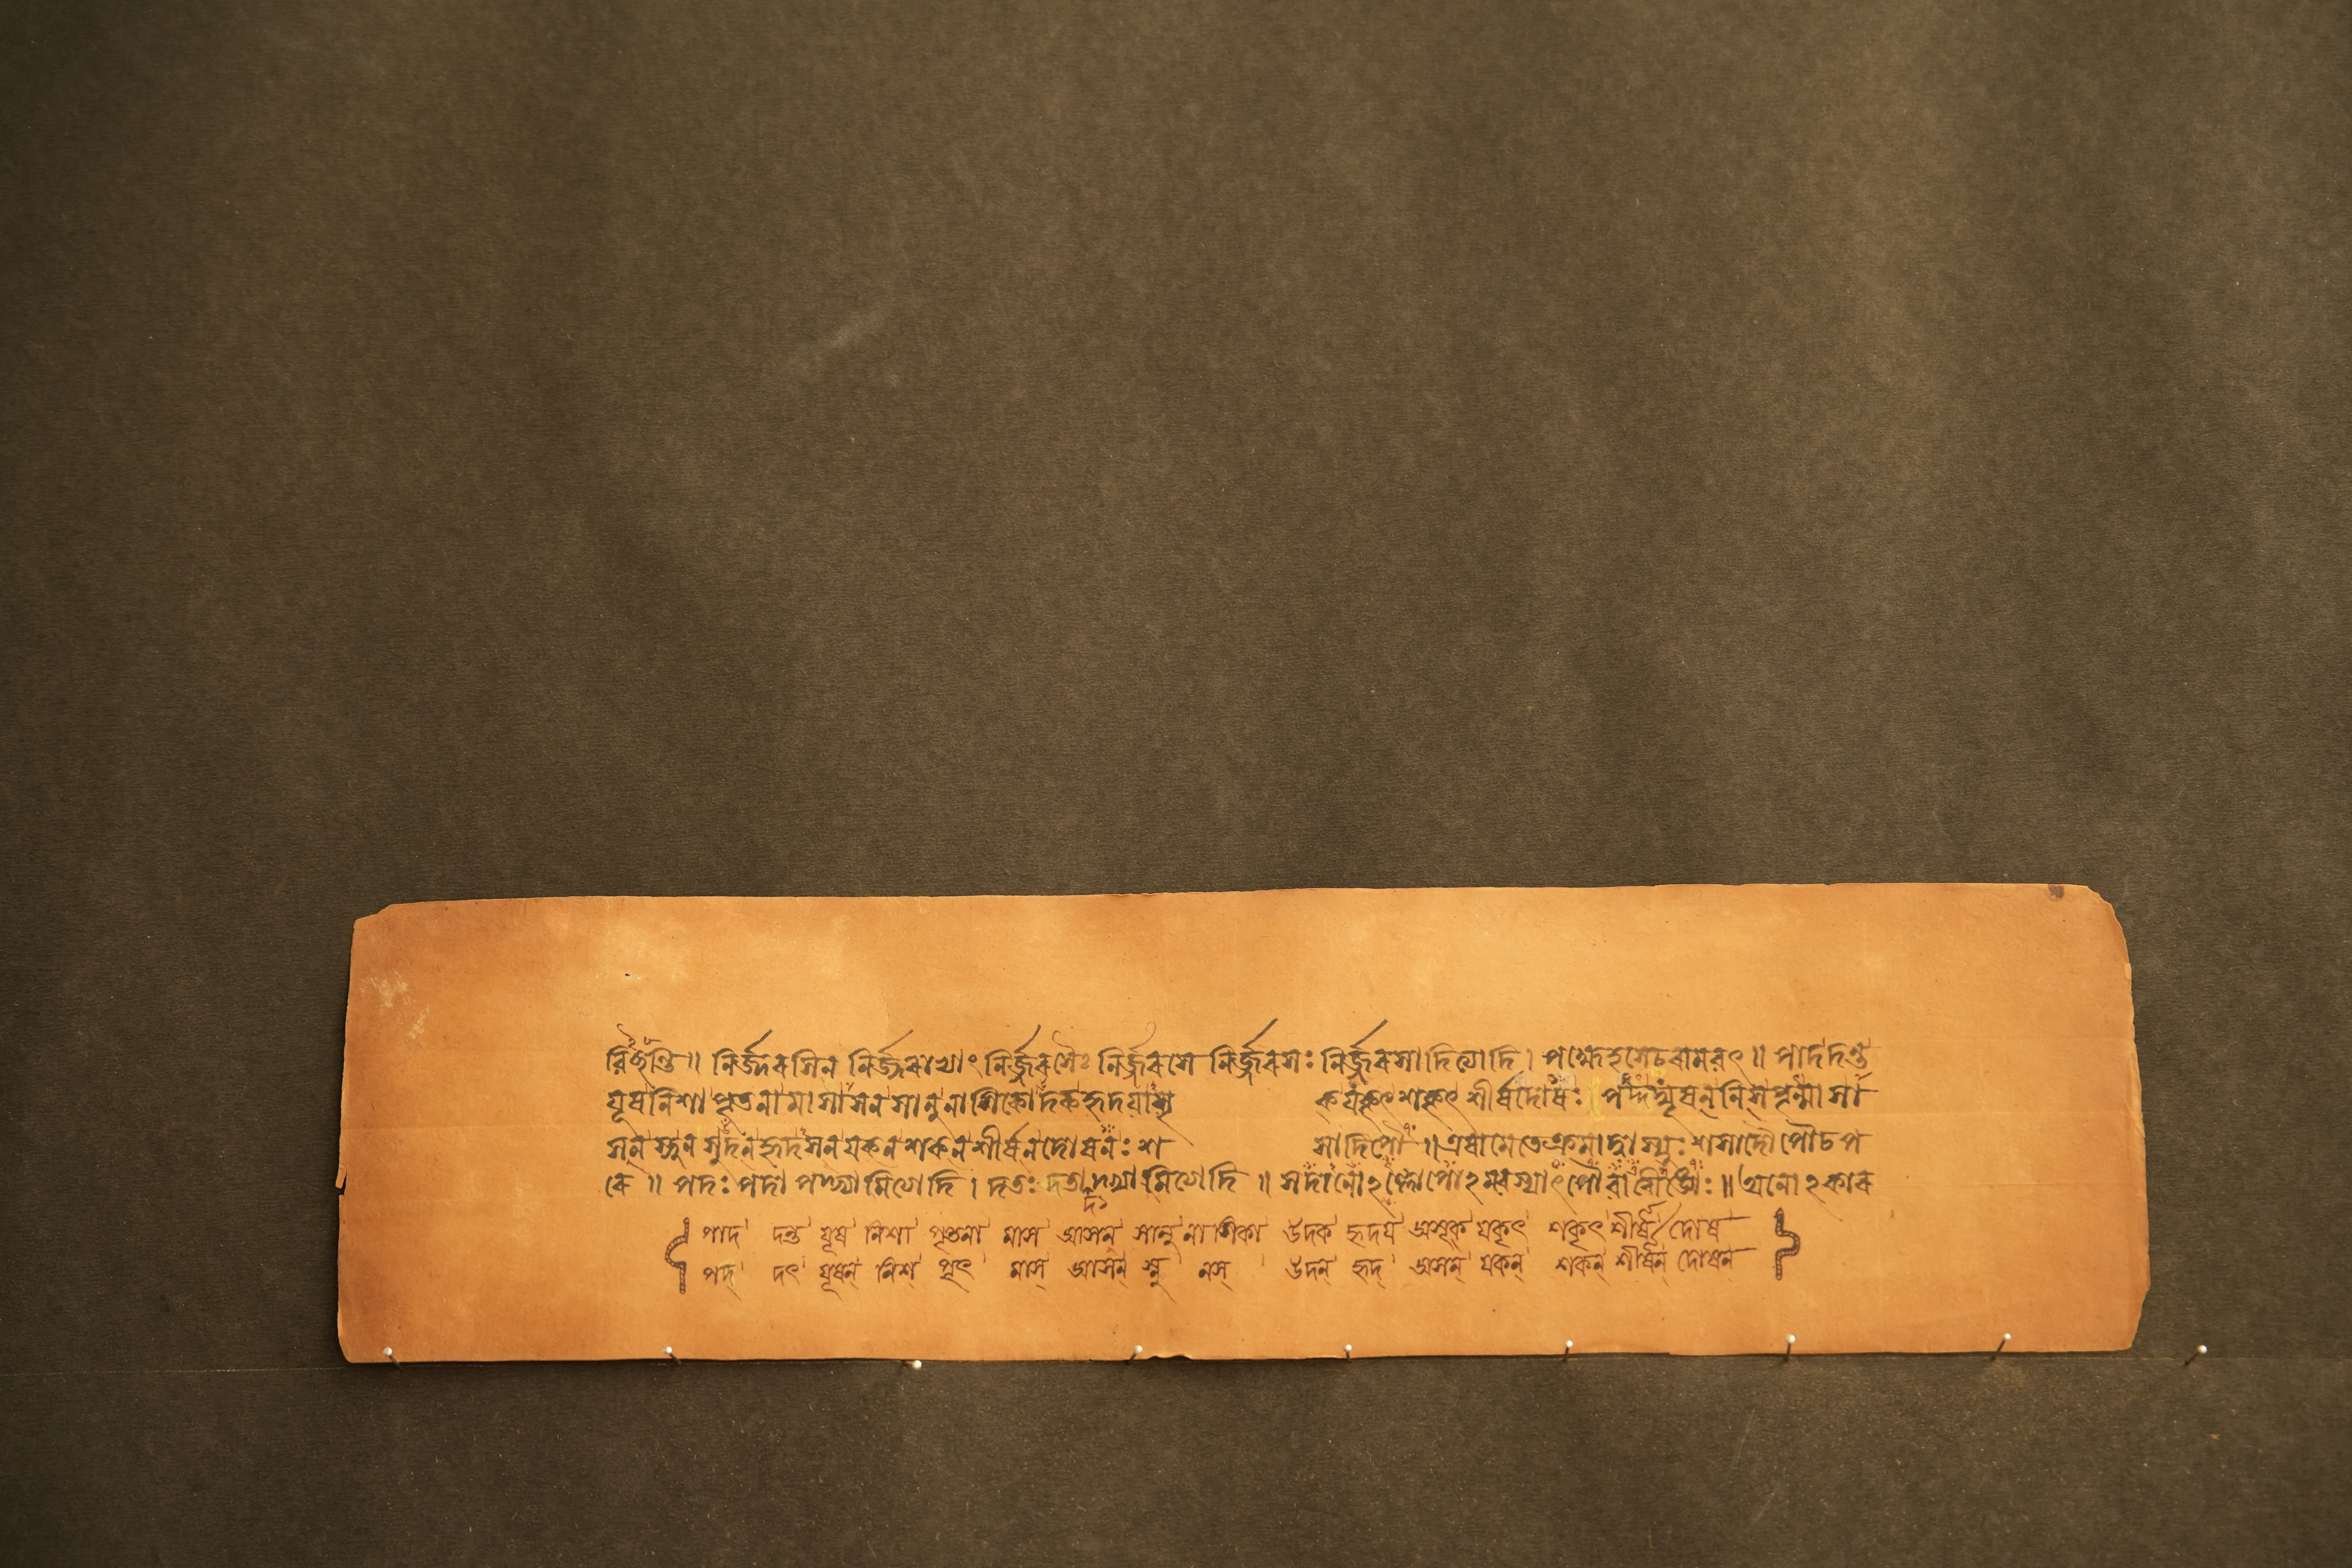 নির্জ্জরসিন নির্জ্জরাভ্যাং নির্জ্জরসৈঃ নির্জ্জরসে নির্জ্জরসঃ নির্জ্জরসাদিত্যাদি। পক্ষেঽসেচরামবৎ॥ পাদদন্ত
যূষনিশাপৃতনামাসাসনসানুনাসিকোদকহৃদয়াসৃ ক্‌যকৃৎশকৃৎশীর্ষদোষঃ পদ্দদ্যূষন্নিস্পৃন্মাসা
সন্‌স্নুনসুদন্‌হৃদসনযকনশকনশীর্ষনদোষনঃ শ সাদিপৌ॥ এষামেতেক্রমাদ্বাস্যুঃ শসাদৌপৌচপ
রে॥ পদঃ পদা পদ্ভ্যামিত্যাদি। দতঃ দতা দদ্ভ্যামিত্যাদি॥
পাদ দন্ত যূষ নিশা পৃতনা মাস আসন সানু নাসিকা উদক হৃদয় অসৃক যকৃৎ শকৃৎ শীর্ষ দোষ
পদ্ দৎ যূষন্ নিশ্ পৃৎ মাস্ আসন্ স্নু নস্ উদন্ হৃদ্ অসন্ যকন্ শকন্ শীর্ষন্ দোষন্